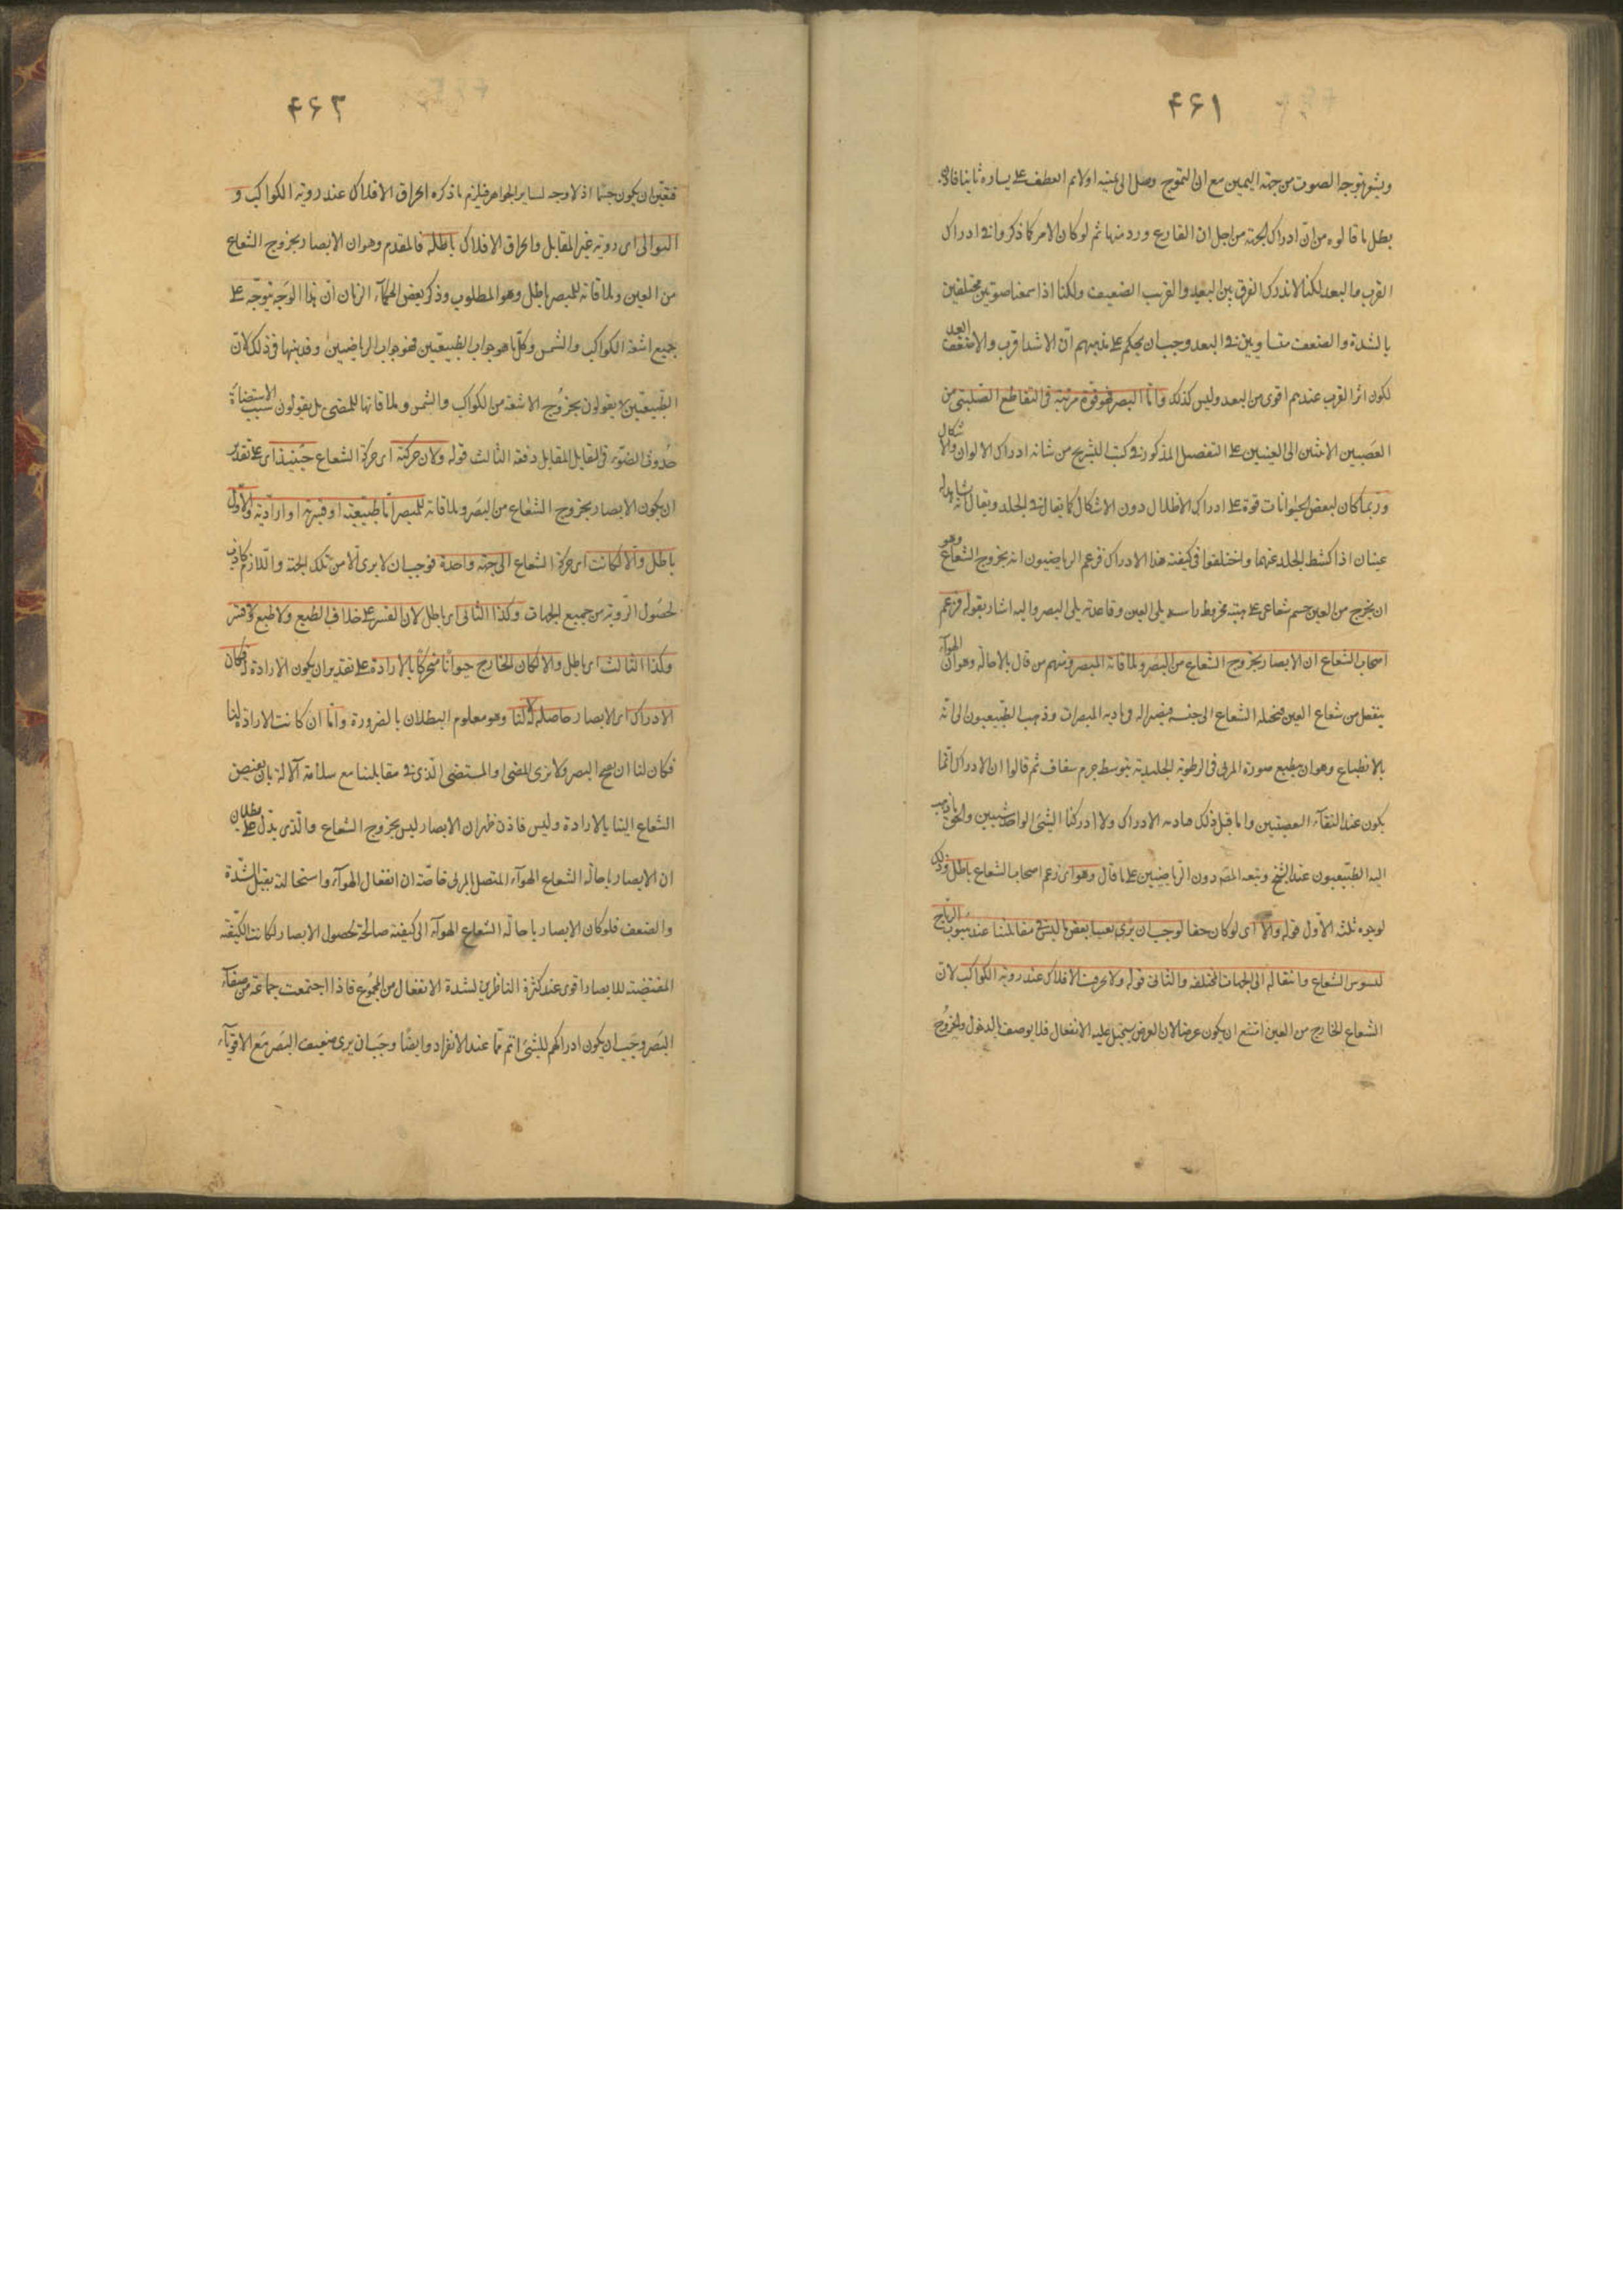 ۴۶۱
ويشعر بتوجه الصوت من جهة اليمين مع ان التموج وصل الى يمينه اولا ثم انعطف على يساره ثانيا
بطل ما قالوه من ان ادراك الجهة من اجل ان القارع ورد منها ثم لو كان الامر كما ذكروا في ادراك
القرب والبعد لكنا لا ندرك الفرق بين البعيد والقريب الضعيف ولكنا اذا سمعنا صوتين مختلفين
بالشدة والضعف متساويين في البعد وجب ان يحكم على مذهبهم ان الاشد اقرب والاضعف ابعد
لكون اثر القرب عندهم اقوى من البعد وليس كذلك واما البصر فهو قوة مرتبة في التقاطع الصليبي من
العصبين الاتيين الى العينين على التفصيل المذكور في كتب التشريح من شانه ادراك الالوان والاشكال
وربما كان لبعض الحيوانات قوة على ادراك الاظلال دون الاشكال كما يقال في الخلد ويقال انه
عينان اذا كشط الجلد عنهما واختلفوا في كيفية هذا الادراك فزعم الرياضيون انه بخروج الشعاع وهو
ان يخرج من العين جسم شعاعي على هيئة مخروط راسه يلي العين وقاعدته يلي البصر واليه اشار بقوله فزعم
اصحاب الشعاع ان الابصار بخروج الشعاع من البصر وملاقاته المبصر ومنهم من قال بالاحالة وهو ان الهواء
ينفعل من شعاع العين فيحيله الشعاع الى جنسه فيصير اله في تادية المبصرات وذهب الطبيعيون الى انه
بالانطباع وهو ان ينطبع صورة المرئى فى الرطوبة الجليدية بتوسط جرم شفاف ثم قالوا ان الادراك انما
يكون عند التقاء العصبتين واما قبل ذلك الادراك ولا ادركنا الشئ الواحد شيئين والحق ما ذهب
اليه الطبيعيون عند الشيخ وتبعه المص دون الرياضيين على ما قال وهو اى زعم اصحاب الشعاع باطل وذلك
لوجوه ثلثه الاول قوله والا اى لو كان حقا لوجب ان يرى بعضها ليس فى مقابلتنا عند هبوب الرياح
لتشوش الشعاع وانتقاله الى الجهات المختلفه والثانى قوله ولا الافلاك عند روية الكواكب لان
الشعاع الخارج من العين امتنع ان يكون عرضا لان العرض يستحيل عليه الانتقال فلا يوصف بالدخول والخروج
۴۶۲
فتعين ان يكون جسما اذ لا وجه لساير الجواهر فيلزم ما ذكره انخراق الافلاك عند روية الكواكب و
التوالى اى روية غير المقابل وانخراق الافلاك باطلة فالمقدم وهو ان الابصار بخروج الشعاع
من العين وملاقاته للمبصر باطل وهو المطلوب وذكر بعض الحكماء الزمان ان هذا الوجه يتوجه على
جميع اشعة الكواكب والشمس وكل ما هو جواب الطبيعيين فهو جواب الرياضيين وفي ذلك لان
الطبيعيين لا يقولون بخروج الاشعة من الكواكب والشمس وملاقاتها للمضى بل يقولون سبب الاستضاءة
حدوث الضوء فى المقابل المقابل دفعة الثالث قوله ولان حركته اى حركة الشعاع حينئذ اى على تقدير
ان يكون الابصار بخروج الشعاع من البصر وملاقاته للمبصر اما طبيعية او قسرية او ارادية والاول
باطل والا لكانت اى حركة الشعاع الى جهة واحدة فوجب ان لا يرى الا من تلك الجهة واللازم كاذب
لحصول الروية من جميع الجهات وكذا الثانى اى باطل لان القسر على خلاف الطبع ولا طبع فلا قسر
وكذا الثالث اى باطل والا لكان الخارج حيوانا متحركا بالارادة على تقدير ان يكون الارادة له فكان
الادراك اى الابصار حاصلا له لا لنا وهو معلوم البطلان بالضرورة واما ان كانت الارادة لنا
فكان لنا ان نفتح البصر ولا نرى المضى او المستضى الذى في مقابلتنا مع سلامة الالة بان نقبض
الشعاع الينا بالارادة وليس فاذن ظهر ان الابصار ليس بخروج الشعاع والذى يدل على بطلان
ان الابصار باحالة الشعاع الهواء المتصل بالمرئى خاصة ان انفعال الهواء واستحالته يقبل الشدة
والضعف فلو كان الابصار باحالة الشعاع الهواء الى كيفية صالحة لحصول الابصار لكانت الكيفية
المقتضية للابصار اقوى عند كثرة الناظرين لشدة الانفعال من المجموع فاذا اجتمعت جماعة من ضعفاء
البصر وجب ان يكون ادراكهم للشئ اتم مما عند الانفراد وايضا وجب ان يرى ضعيف البصر مع الاقوياء